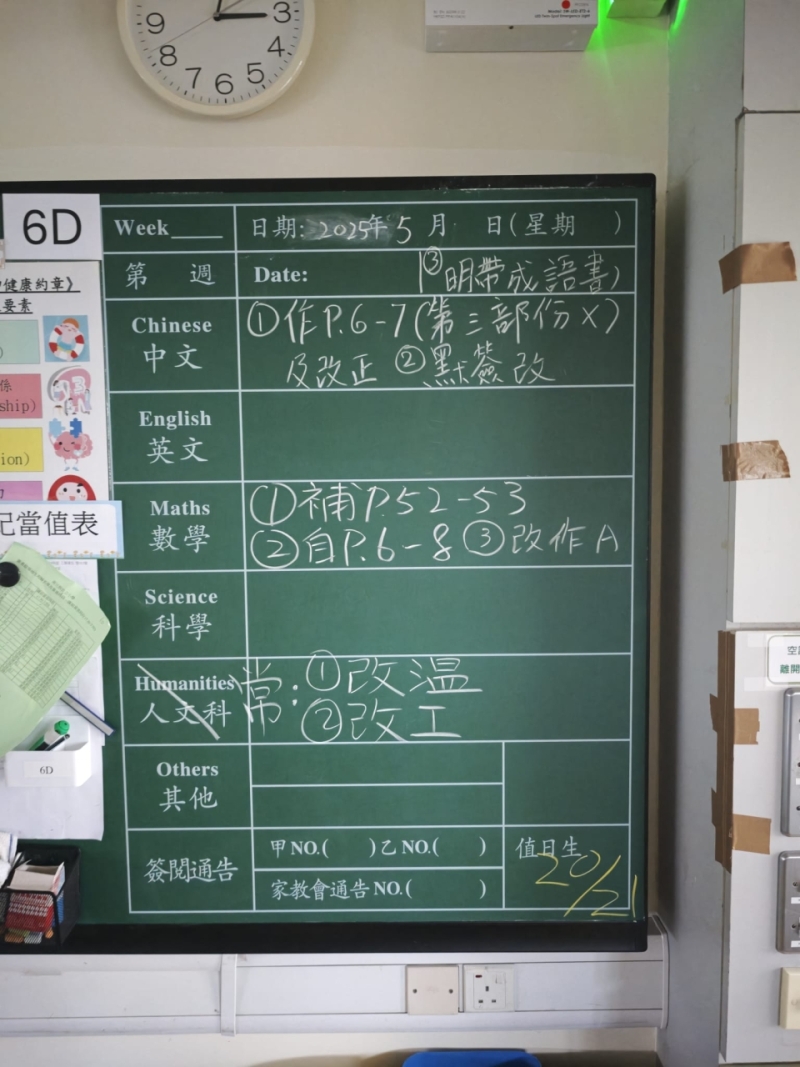 9
3
8
4
7
6
5
6D
Week____ 日期: 2025年5月 日(星期 )
第 週 Date: ③明帶成語書)
Chinese ①作P.6-7(第三部份×)
中文 及改正 ②默簽改
English
英文
Maths ①補P.52-53
數學 ②自P.6-8 ③改作A
Science
科學
Humanities 常: ①改溫
人文科 ②改工
Others
其他
簽閱通告 甲NO.( )乙NO.( ) 值日生
家教會通告NO.( ) 20/21
健康約章》
要素
係
ship)
ion)
當值表
6D